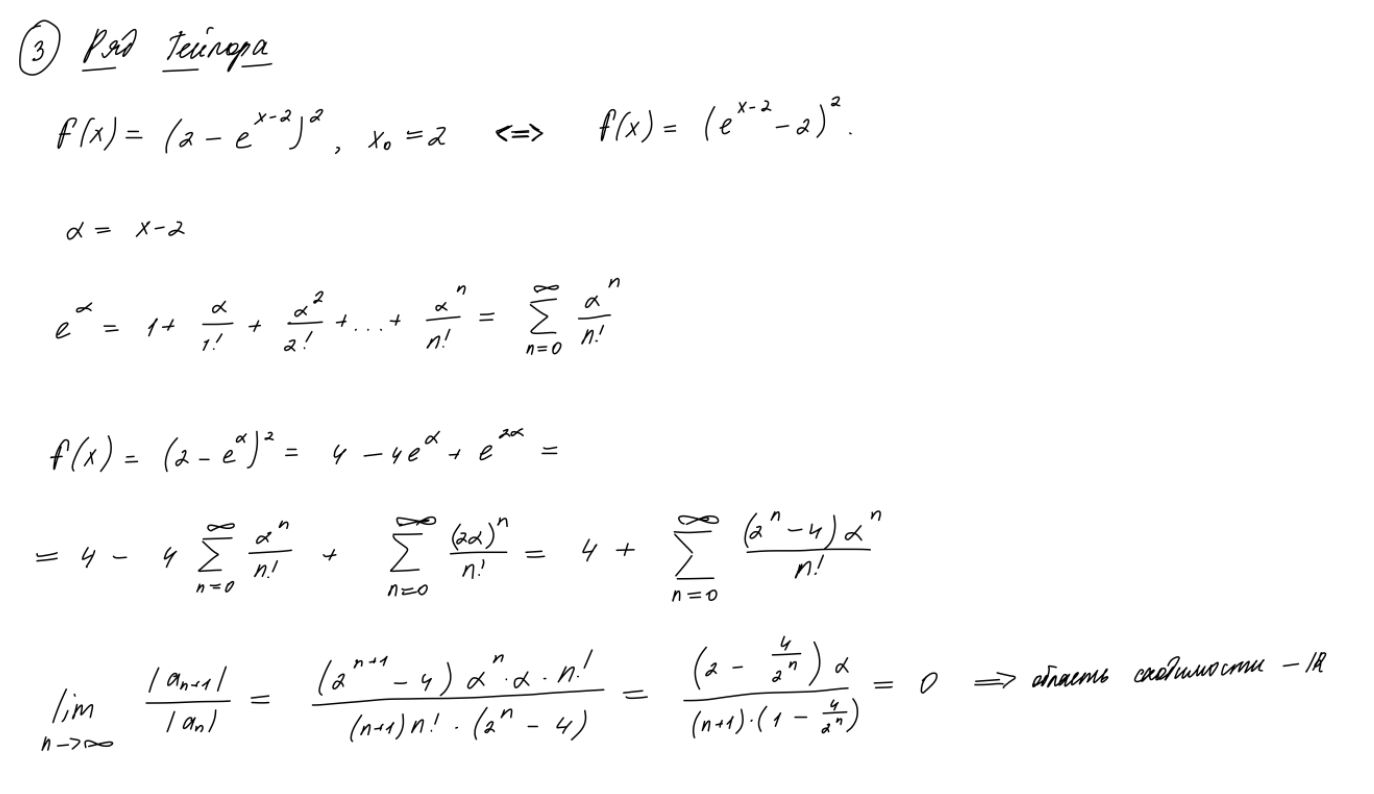 ③ Ряд Тейлора
f(x) = (2 - e^{x-2})^2, x_0 = 2 <=> f(x) = (e^{x-2} - 2)^2.
α = x-2
e^α = 1 + \frac{α}{1!} + \frac{α^2}{2!} + ... + \frac{α^n}{n!} = \sum_{n=0}^{∞} \frac{α^n}{n!}
f(x) = (2 - e^α)^2 = 4 - 4e^α + e^{2α} =
= 4 - 4 \sum_{n=0}^{∞} \frac{α^n}{n!} + \sum_{n=0}^{∞} \frac{(2α)^n}{n!} = 4 + \sum_{n=0}^{∞} \frac{(2^n - 4) α^n}{n!}
\lim_{n->∞} \frac{|a_{n+1}|}{|a_n|} = \frac{(2^{n+1} - 4) α^n · α · n!}{(n+1) n! · (2^n - 4)} = \frac{(2 - \frac{4}{2^n}) α}{(n+1) · (1 - \frac{4}{2^n})} = 0 => область сходимости - ℝ